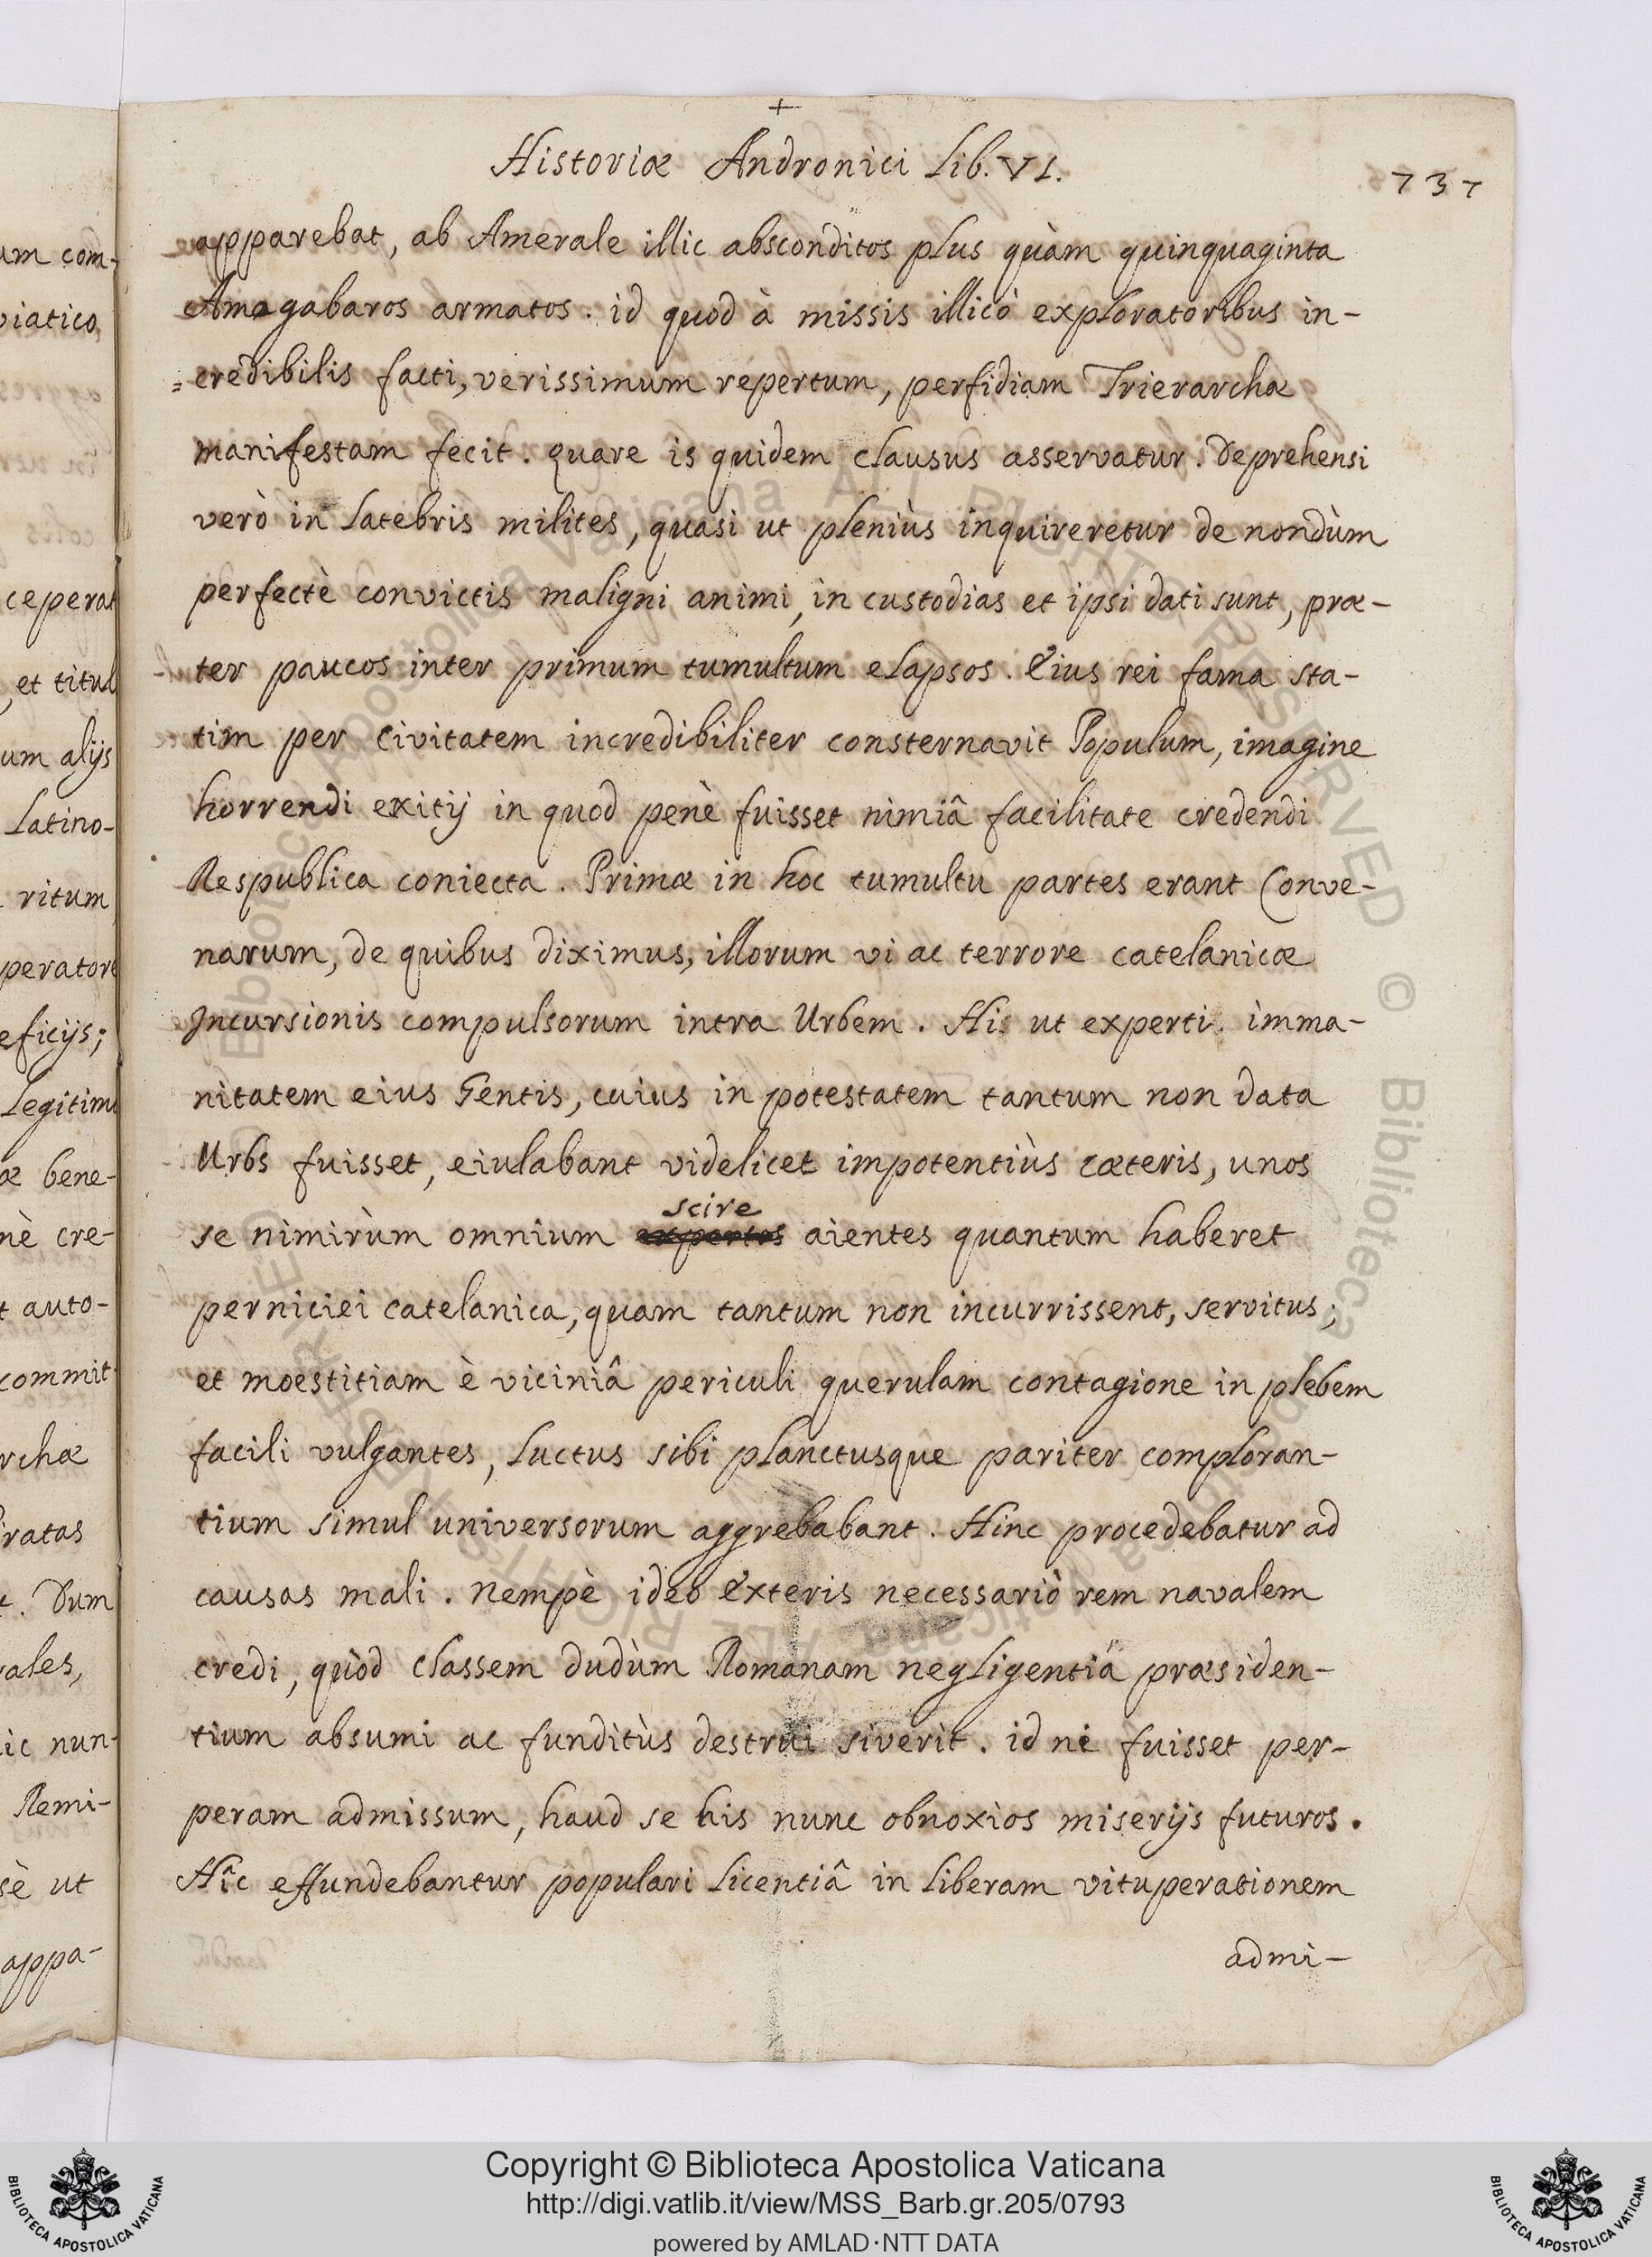 +
Historiæ Andronici Lib. VI.
737
apparebat, ab Amerale illic absconditos plus quàm quinquaginta
Amogabaros armatos. id quod à missis illicò exploratoribus in-
=credibilis facti, verissimum repertum, perfidiam Trierarchæ
manifestam fecit. quare is quidem clausus asservatur. Deprehensi
verò in latebris milites, quasi ut pleniùs inquireretur de nondùm
perfectè convictis maligni animi, in custodias et ipsi dati sunt, præ-
ter paucos inter primum tumultum elapsos. Eius rei fama sta-
tim per Civitatem incredibiliter consternavit Populum, imagine
horrendi exitij in quod penè fuisset nimiâ facilitate credendi
Respublica coniecta. Primæ in hoc tumultu partes erant Conve-
narum, de quibus diximus, illorum vi ac terrore catelanicæ
Incursionis compulsorum intra Urbem. His ut experti imma-
nitatem eius Gentis, cuius in potestatem tantum non data
Urbs fuisset, eiulabant videlicet impotentiùs cæteris, unos
scire
se nimirùm omnium expertos aientes quantum haberet
perniciei catelanica, quam tantum non incurrissent, servitus;
et moestitiam è viciniâ periculi querulam contagione in plebem
facili vulgantes, luctus sibi planctusque pariter comploran-
tium simul universorum aggrebabant. Hinc procedebatur ad
causas mali. Nempè ideo Exteris necessariò rem navalem
credi, quòd Classem dudùm Romanam negligentiâ præsiden-
tium absumi ac funditùs destrui siverit. id ni fuisset per-
peram admissum, haud se his nunc obnoxios miserijs futuros.
Hîc effundebantur populari licentiâ in liberam vituperationem
admi-
um com-
viatico
ceperat
, et titul
um alijs
Latino-
ritum
peratore
eficijs;
Legitimu
æ bene-
nè cre-
t auto-
commit-
rchæ
ratas
t. Dum
ales,
ic nun-
Remi-
sè ut
appa-
© Biblioteca Apostolica Vaticana ALL RIGHTS RESERVED © Biblioteca Apostolica Vaticana ALL RIGHTS RESERVED
Copyright © Biblioteca Apostolica Vaticana
http://digi.vatlib.it/view/MSS_Barb.gr.205/0793
powered by AMLAD·NTT DATA
BIBLIOTECA APOSTOLICA VATICANA
BIBLIOTECA APOSTOLICA VATICANA